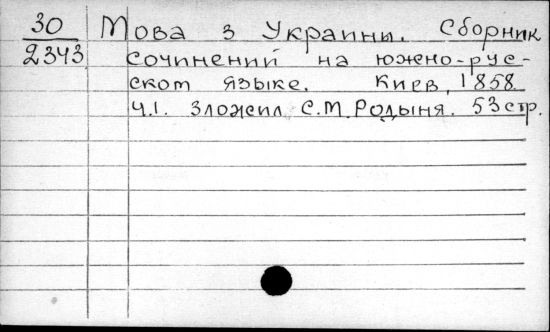 30 Мова з Украины. Сборник
2343 сочинений на южно-рус-
ском языке. Киев, 1858.
Ч.1. Зложил С.М. Родыня. 53 стр.